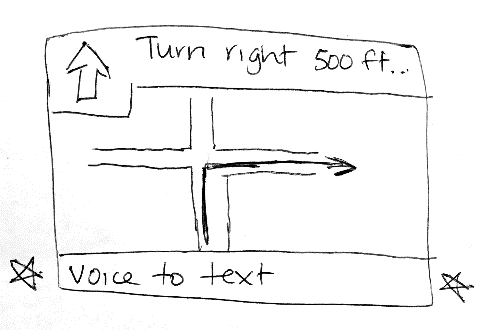 Turn right 500 ft...
Voice to text